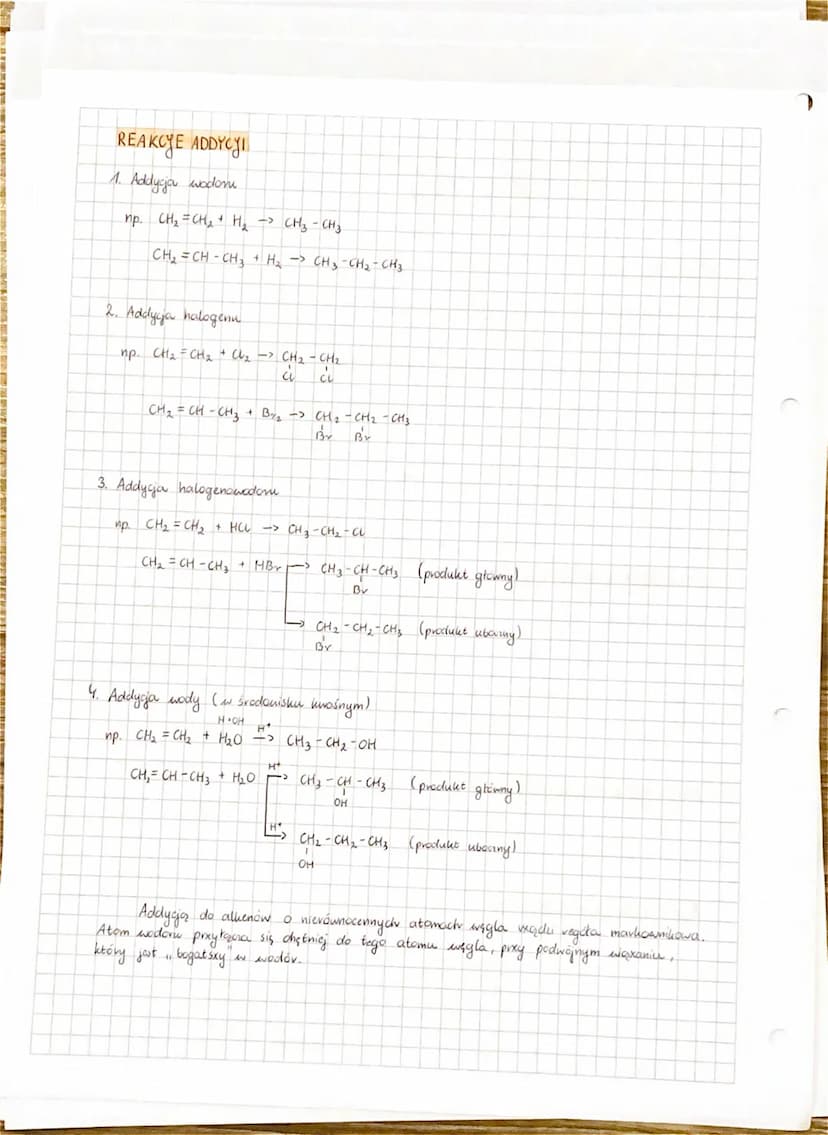 REAKCJE ADDYCJI
1. Addycja wodoru
np. CH₂=CH₂ + H₂ -> CH₃-CH₃
CH₂=CH-CH₃ + H₂ -> CH₃-CH₂-CH₃
2. Addycja halogenu
np. CH₂=CH₂ + Cl₂ -> CH₂-CH₂
Cl Cl
CH₂=CH-CH₃ + Br₂ -> CH₂-CH₂-CH₃
Br Br
3. Addycja halogenowodoru
np. CH₂=CH₂ + HCl -> CH₃-CH₂-Cl
CH₂=CH-CH₃ + HBr -> CH₃-CH-CH₃ (produkt główny)
Br
-> CH₂-CH₂-CH₃ (produkt uboczny)
Br
4. Addycja wody (w środowisku kwaśnym)
H·OH
np. CH₂=CH₂ + H₂O H⁺ -> CH₃-CH₂-OH
CH₂=CH-CH₃ + H₂O H⁺ -> CH₃-CH-CH₃ (produkt główny)
OH
H⁺ -> CH₂-CH₂-CH₃ (produkt uboczny)
OH
Addycją do alkenów o nierównocennych atomach węgla rządzi reguła markownikowa.
Atom wodoru przyłącza się chętniej do tego atomu węgla, przy podwójnym wiązaniu,
który jest „bogatszy" w wodór.